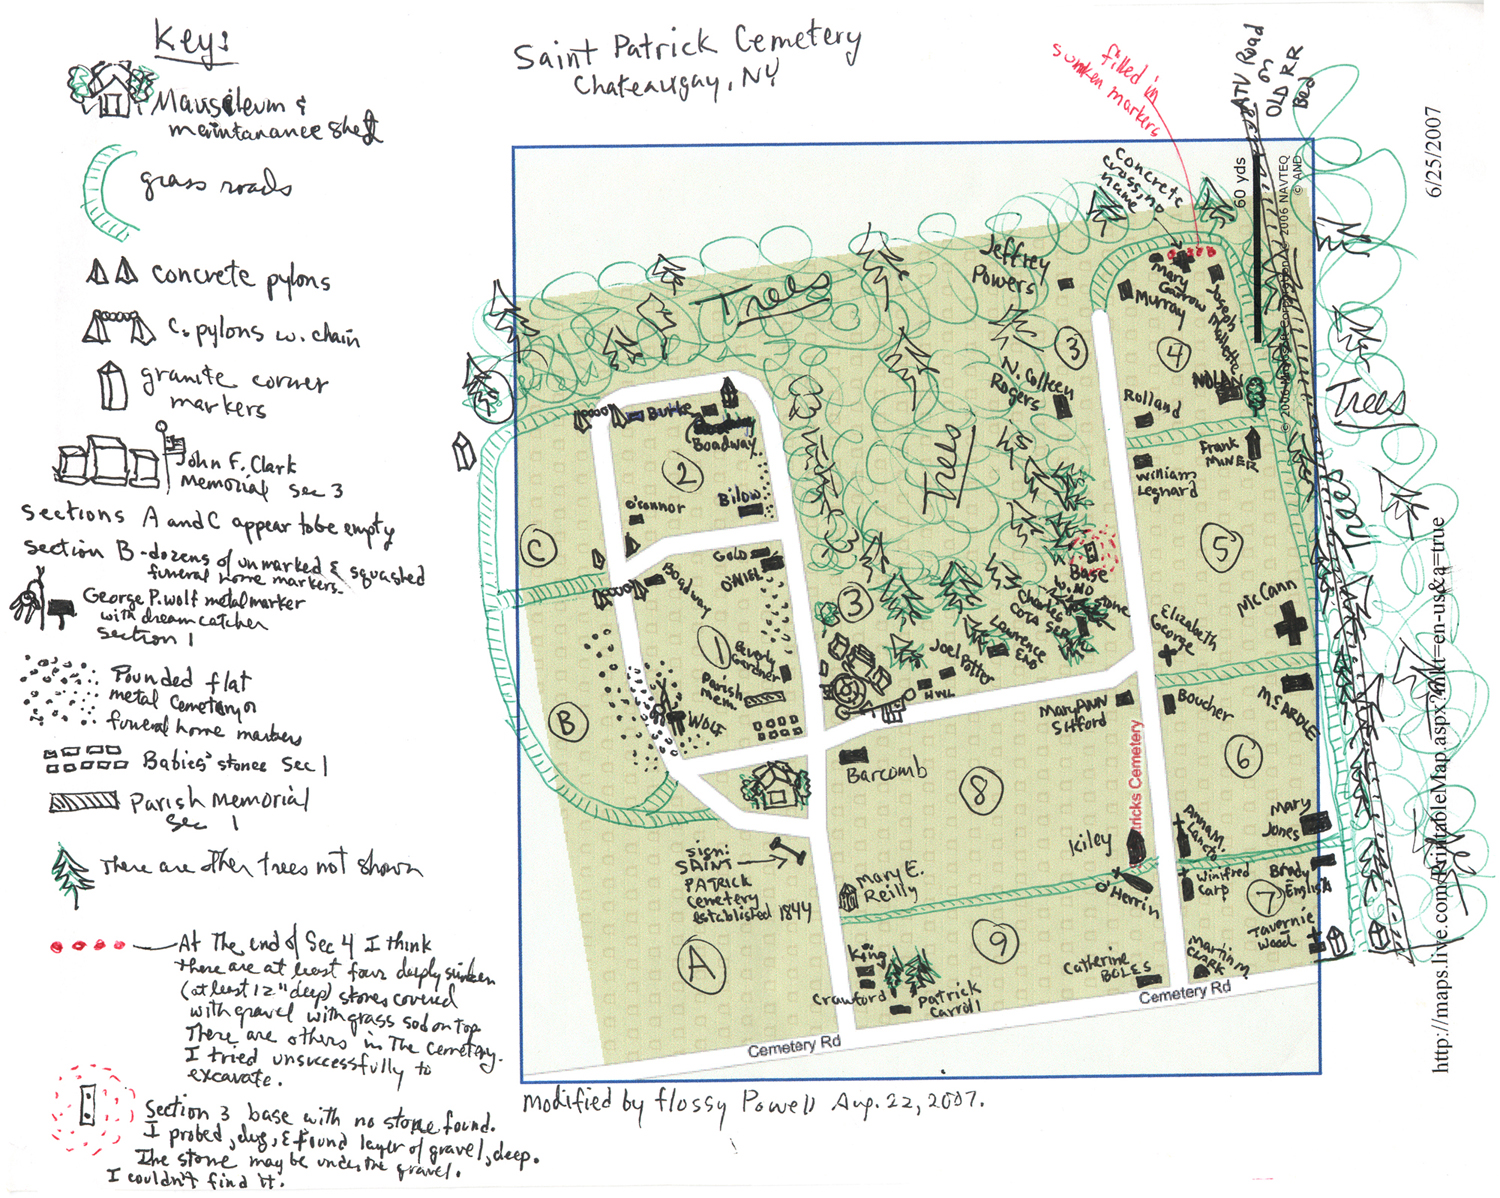 Key:
Mausileum &
maintanance shed
grass roads
concrete pylons
C. pylons w. chain
granite corner
markers
John F. Clark
Memorial Sec 3
Sections A and C appear to be empty
Section B - dozens of unmarked & squashed
funeral home markers.
George P. Wolf metal marker
with dream catcher
section 1
Pounded flat
metal Cemetery or
funeral home markers
Babies' stones Sec 1
Parish Memorial
Sec 1
There are other trees not shown
At The end of Sec 4 I think
there are at least four deeply sunken
(at least 12" deep) stones covered
with gravel with grass sod on top
There are others in The Cemetery.
I tried unsuccessfully to
excavate.
Section 3 base with no stone found.
I probed, dug, & found layer of gravel, deep.
The stone may be under the gravel.
I couldn't find it.
Saint Patrick Cemetery
Chateaugay, NY
filled in
sunken markers
ATV Road
on
OLD RR
Bed
6/25/2007
60 yds
© 2006 NAVTEQ
© AND
Concrete
cross, no
name
Trees
Jeffrey
Powers
Mary
Gadrow
Murray
Joseph
Mallette
3
4
N. Colleen
Rogers
NOLAN
Rolland
Trees
Burke
Boadway
2
Trees
Frank
MINER
William
Legnard
O'connor
Bilow
C
5
Gold
O'NIEL
Base
NO stone
Boadway
3
Charles
Lawrence
Elizabeth
George
McCann
1
Beverly
Gardner
Joel Potter
Parish
mem.
HWL
B
WOLF
MaryANN
Sifford
Boucher
MSARDLE
Barcomb
8
6
tricks Cemetery
Mary
Jones
Kiley
Anna M.
Lancto
sign:
SAINT
PATRICK
Cemetery
established 1844
Mary E.
Reilly
O'Herrin
Winifred
Carp
Brady
English
7
Tavernie
Wood
A
9
King
Crawford
Patrick
Carroll
Catherine
BOLES
Martin M.
CLARK
Cemetery Rd
Cemetery Rd
http://maps.live.com/PrintableMap.aspx?mkt=en-us&q=true
modified by flossy Powell Aug. 22, 2007.